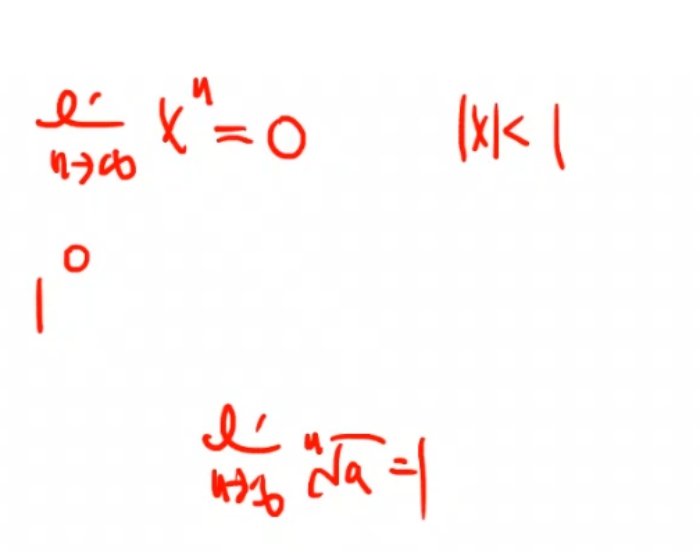 lim n→∞ xⁿ = 0 |x| < 1
1⁰
lim n→∞ ⁿ√a = 1